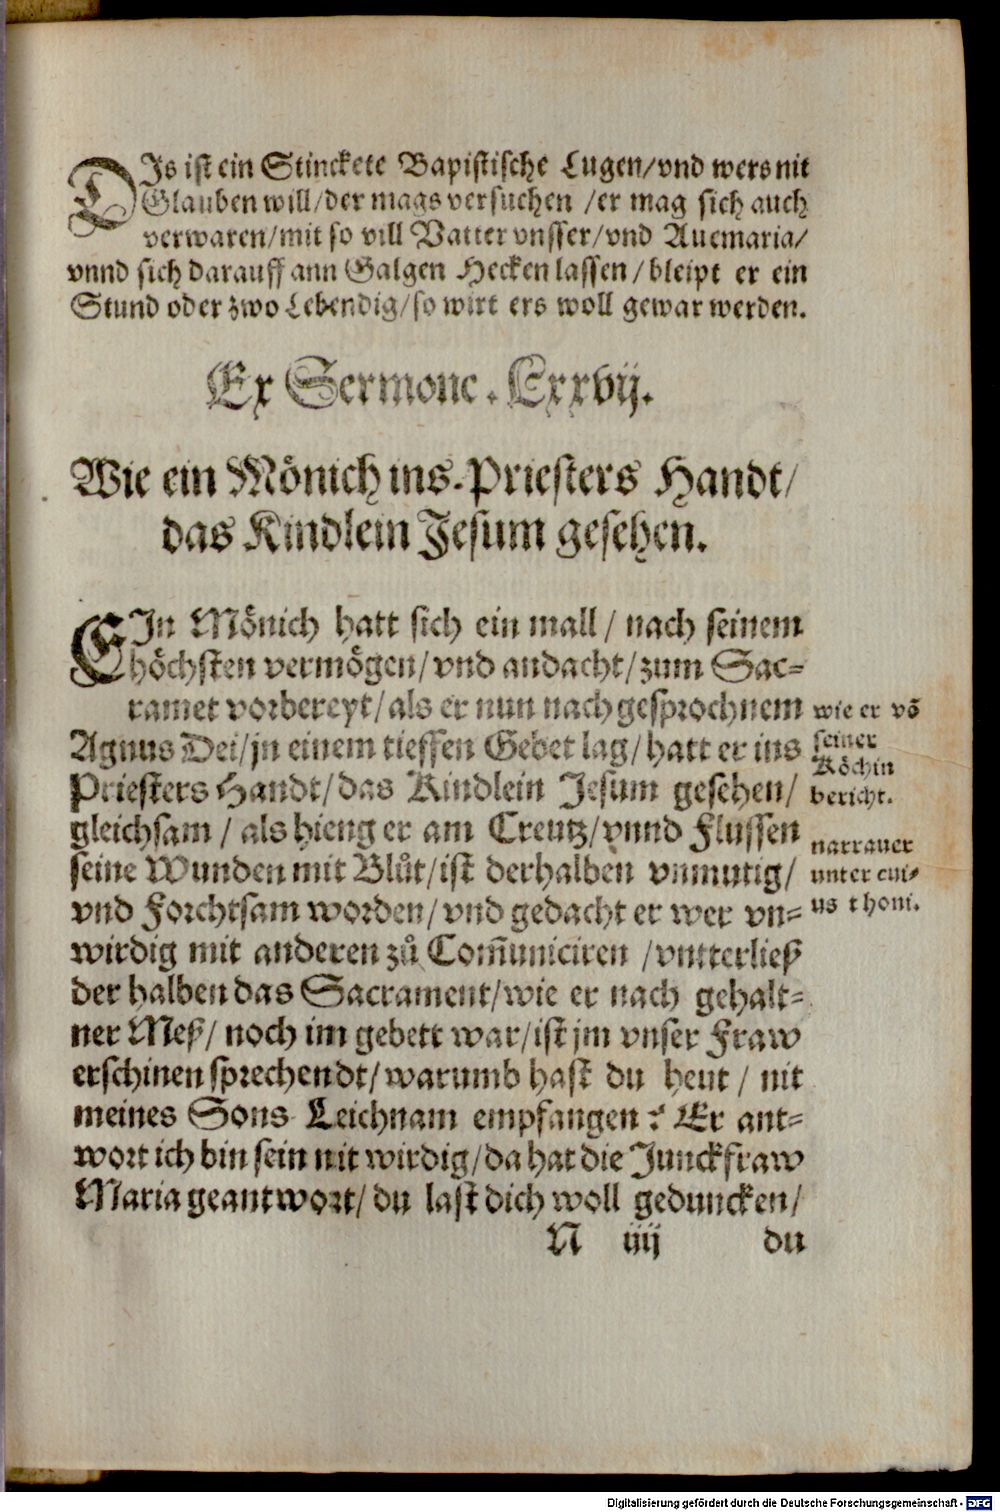 DIs ist ein Stinckete Bapistische Lugen/vnd wers nit
Glauben will/der mags versuchen /er mag sich auch
verwaren/mit so vill Vatter vnsser/vnd Auemaria/
vnnd sich darauff ann Galgen Hecken lassen/bleipt er ein
Stund oder zwo Lebendig/so wirt ers woll gewar werden.
Ex Sermone. Lxxvij.
Wie ein Mönich ins Priesters Handt/
das Kindlein Jesum gesehen.
EIn Mönich hatt sich ein mall / nach seinem
höchsten vermögen/vnd andacht/zum Sac-
ramet vorbereyt/als er nun nach gesprochnem
Agnus Dei/jn einem tieffen Gebet lag/hatt er ins
Priesters Handt/das Kindlein Jesum gesehen/
gleichsam / als hieng er am Creutz/vnnd Flussen
seine Wunden mit Blůt/ist derhalben vnmutig/
vnd Forchtsam worden/vnd gedacht er wer vn-
wirdig mit anderen zů Com̃uniciren /vntterließ
der halben das Sacrament/wie er nach gehalt-
ner Meß/ noch im gebett war/ist jm vnser Fraw
erschinen sprechendt/warumb hast du heut / nit
meines Sons Leichnam empfangen? Er ant-
wort ich bin sein nit wirdig/da hat die Junckfraw
Maria geantwort/du last dich woll geduncken/
N iiij du
wie er võ
seiner
Köchin
bericht.
narrauer
unter cui-
us thoni.
Digitalisierung gefördert durch die Deutsche Forschungsgemeinschaft - DFG